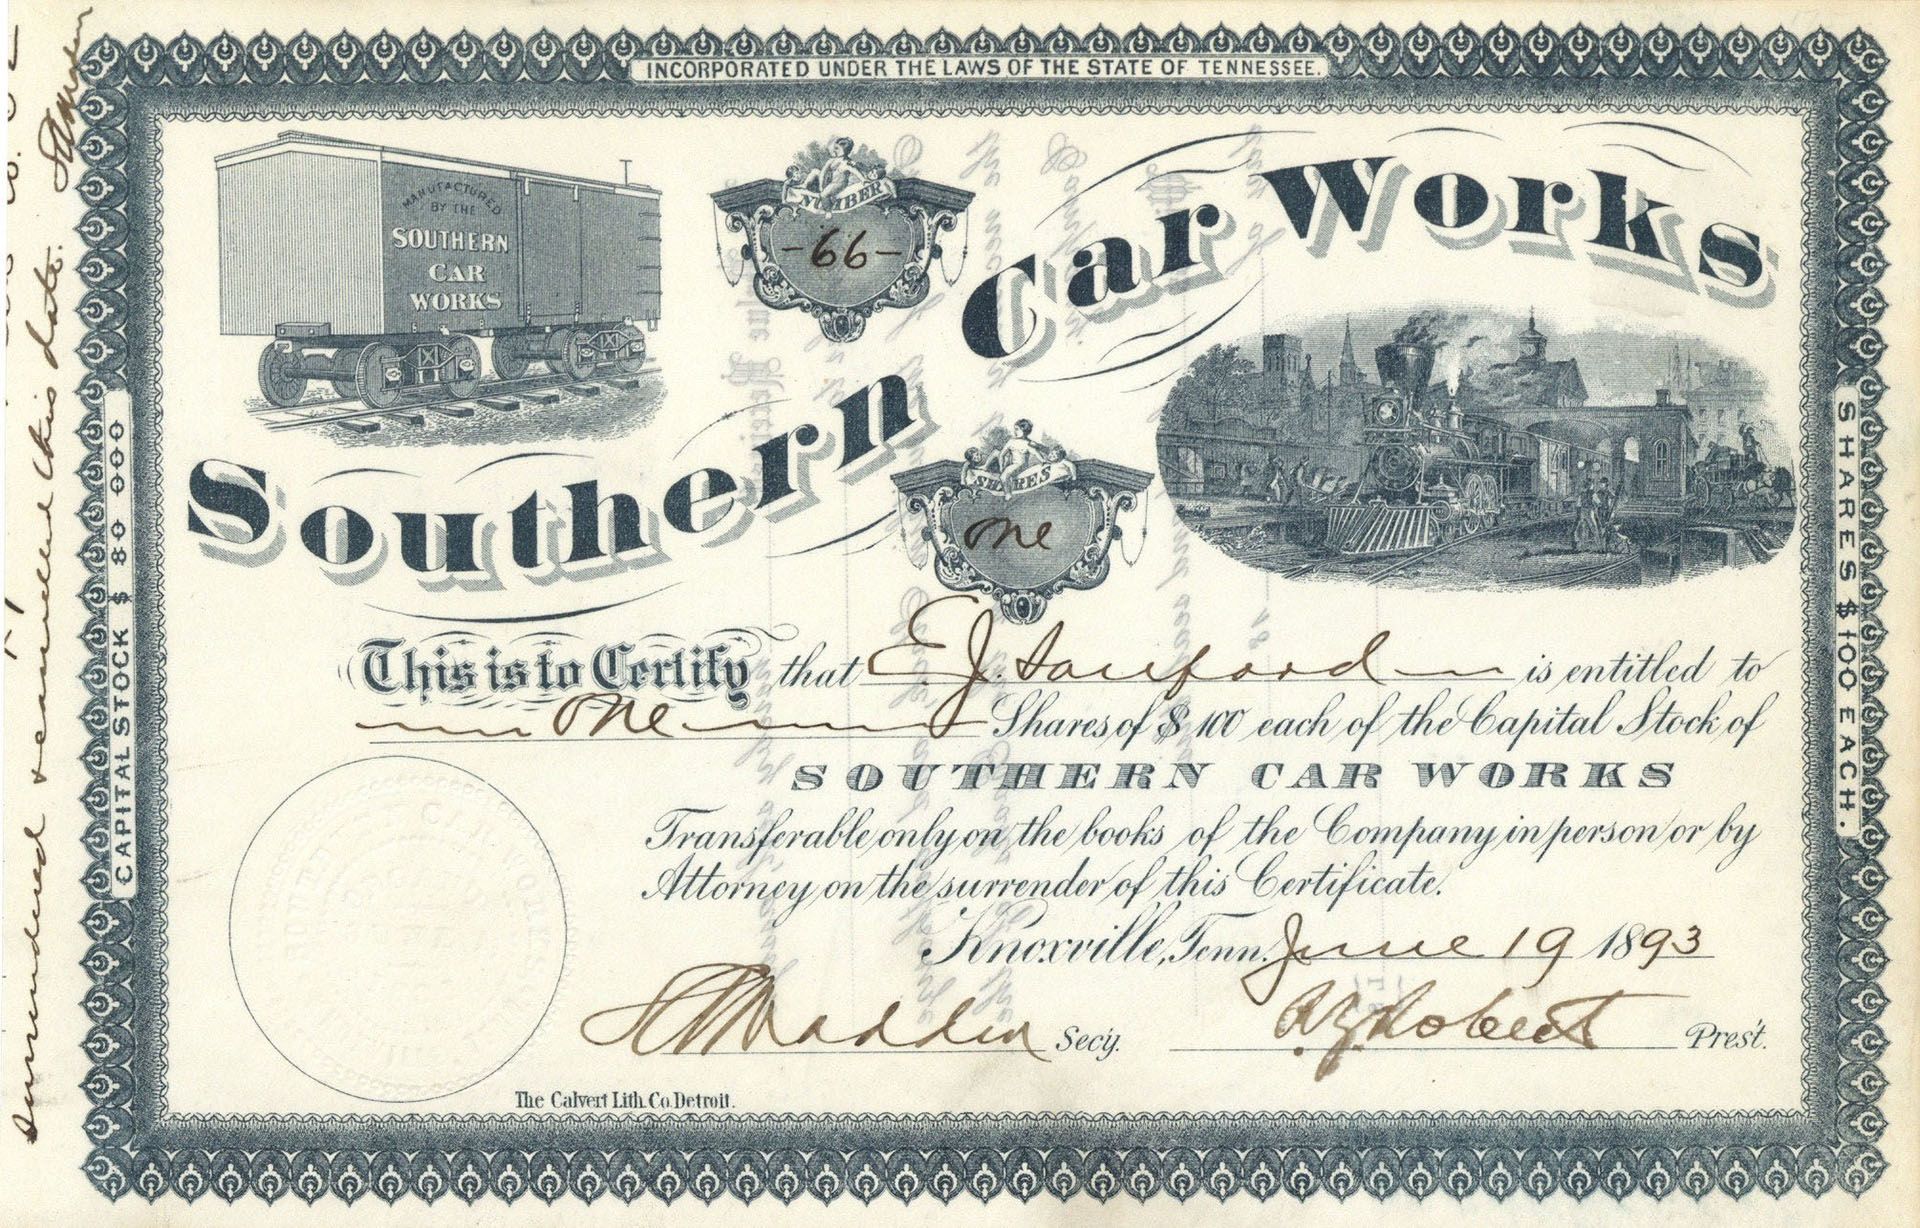 INCORPORATED UNDER THE LAWS OF THE STATE OF TENNESSEE.
MANUFACTURED
BY THE
SOUTHERN
CAR
WORKS
NUMBER
-66-
Southern Car Works
SHARES
One
This is to Certify that E.J. Sanford is entitled to
One Shares of $100 each of the Capital Stock of
SOUTHERN CAR WORKS
Transferable only on the books of the Company in person or by
Attorney on the surrender of this Certificate.
Knoxville, Tenn. June 19 1893
Madden Sec'y. Prest.
The Calvert Lith. Co. Detroit.
CAPITAL STOCK $80 000
SHARES $100 EACH.
Surrendered & cancelled this date.